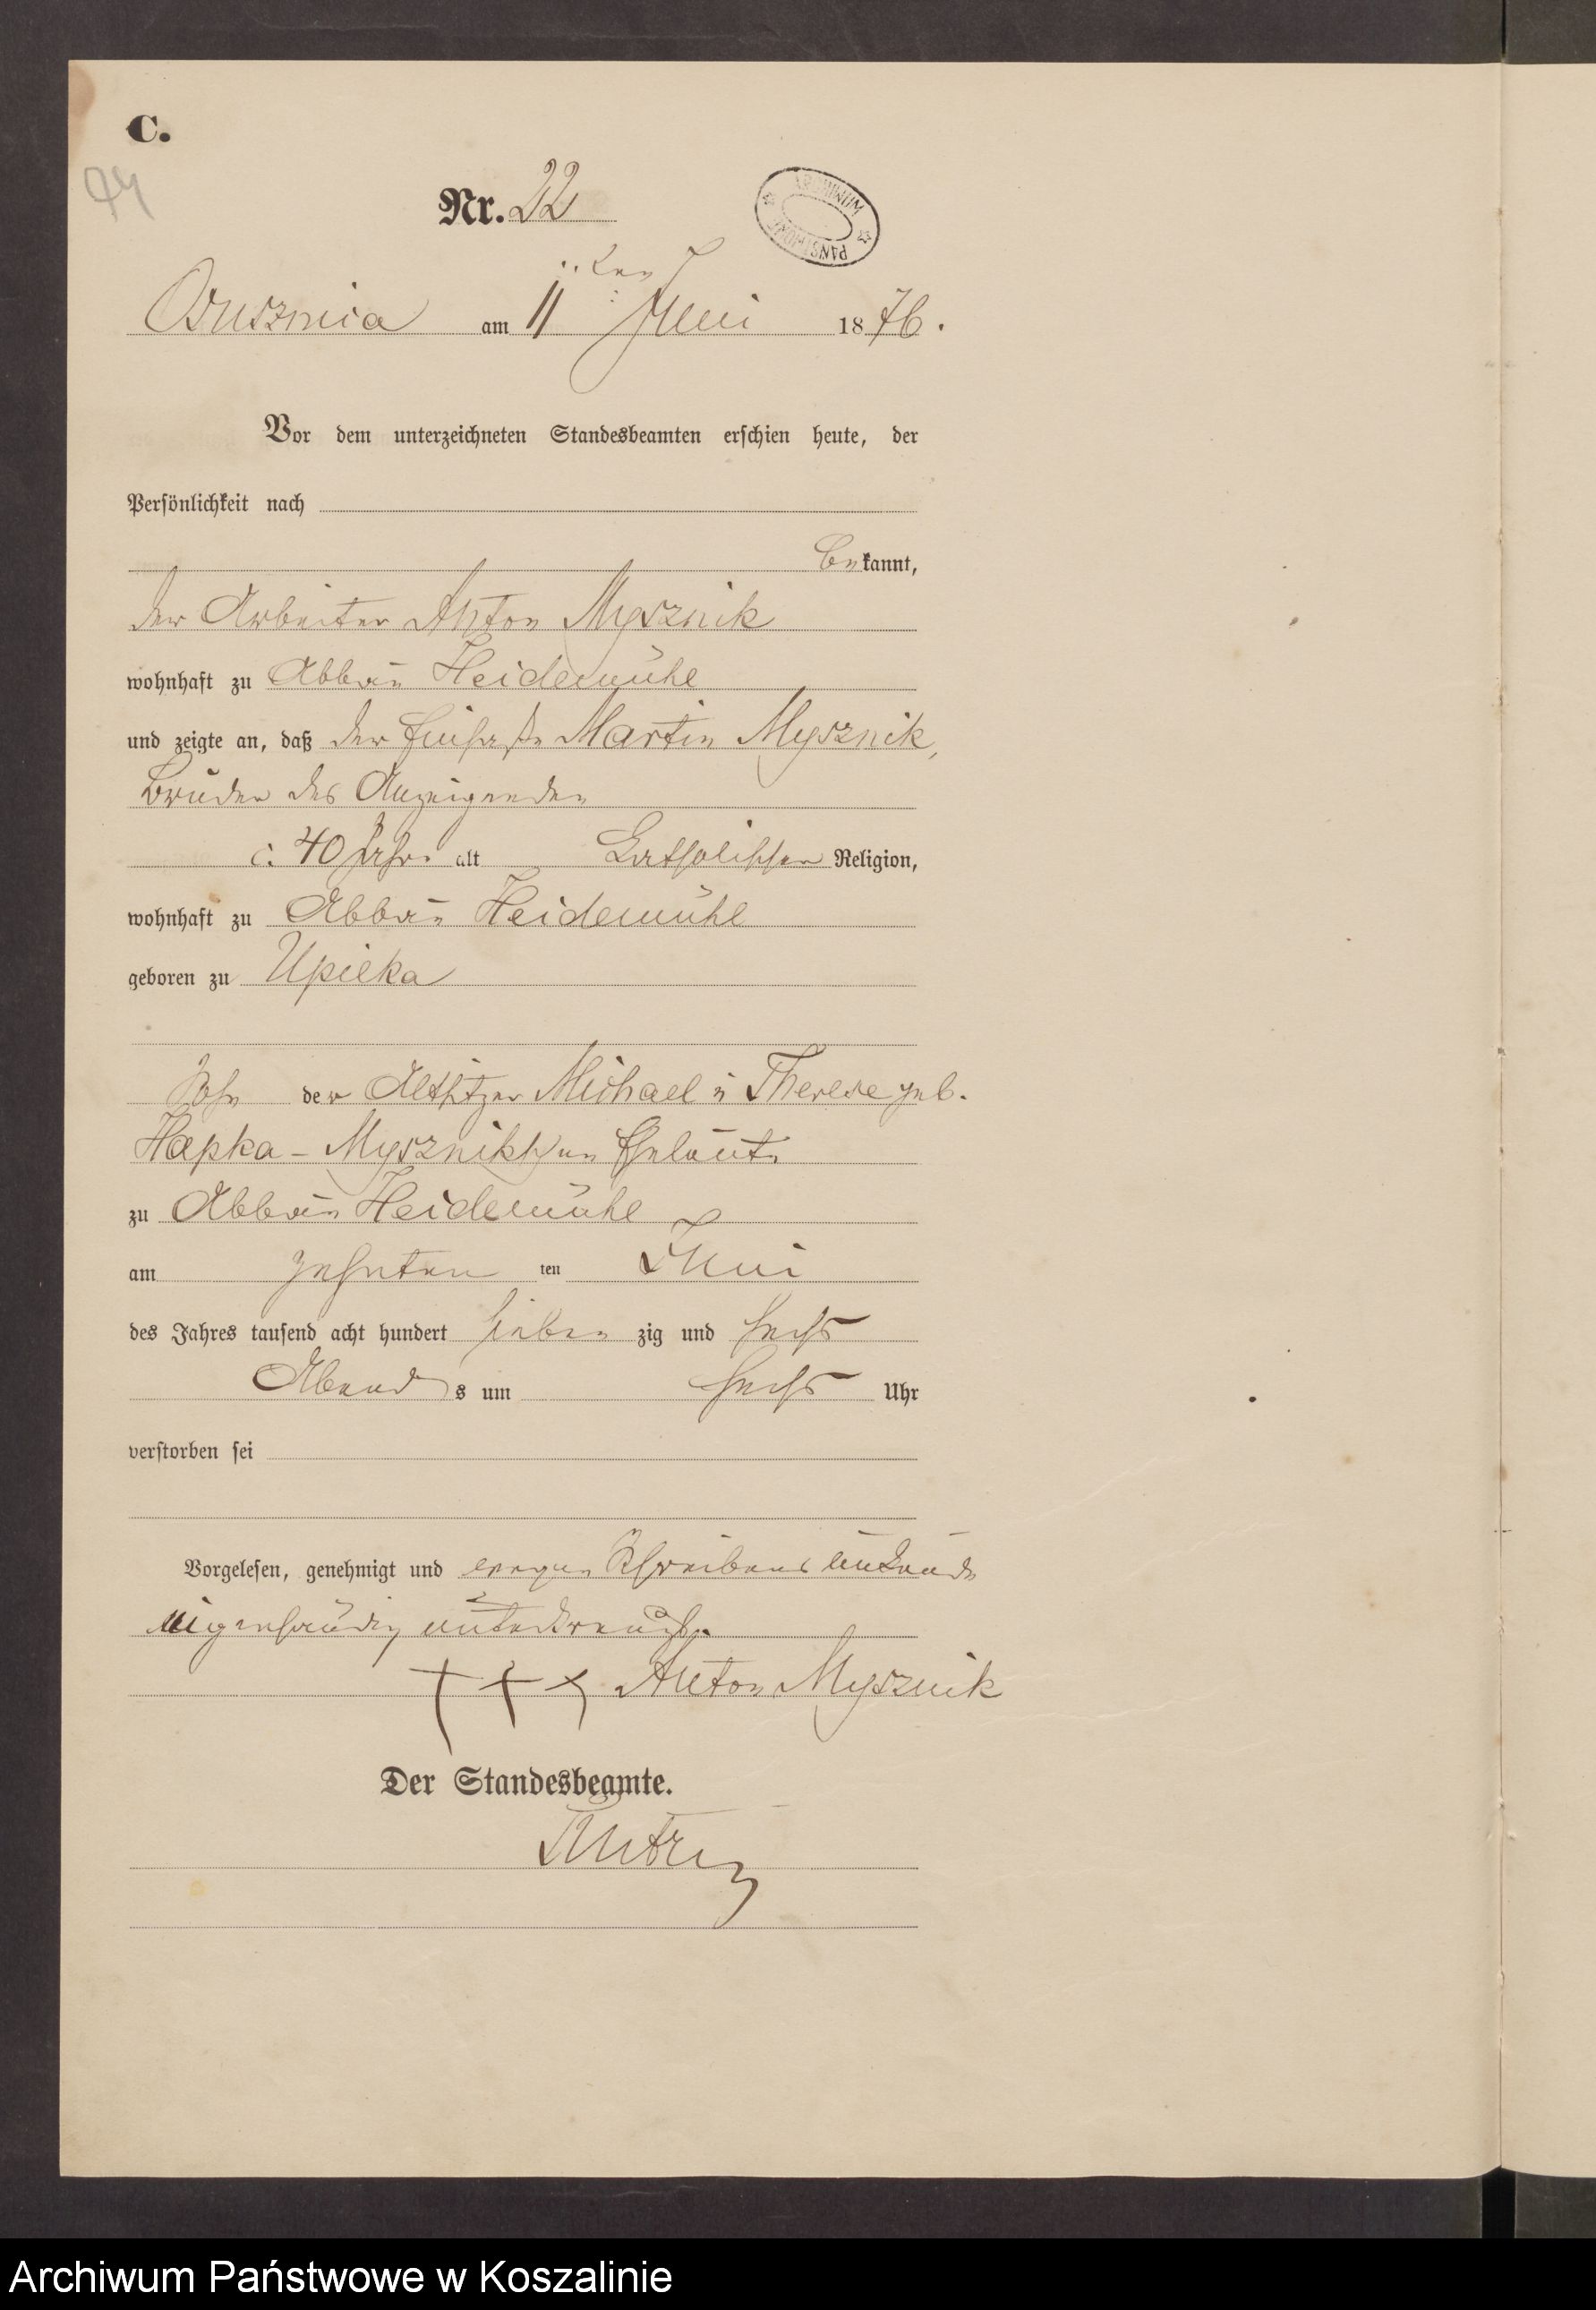 C.
94
Nr. 22
ARCHIWUM PAŃSTWOWE
Osusznica am 11 ten Juni 1876.
Vor dem unterzeichneten Standesbeamten erschien heute, der
Persönlichkeit nach
bekannt,
der Arbeiter Anton Mysznik
wohnhaft zu Abbau Heidemühl
und zeigte an, daß der Einsasse Martin Mysznik,
Bruder des Anzeigenden
c. 40 Jahre alt Katholischer Religion,
wohnhaft zu Abbau Heidemühl
geboren zu Upilka
Sohn der Altsitzer Michael u Therese geb.
Hapka - Mysznikschen Eheleute
zu Abbau Heidemühl
am zehnten ten Juni
des Jahres tausend acht hundert sieben zig und sechs
Abend s um sechs Uhr
verstorben sei
Vorgelesen, genehmigt und wegen Schreibens unkunde
eigenhändig unterkreuzt.
††† Anton Mysznik
Der Standesbeamte.
Archiwum Państwowe w Koszalinie